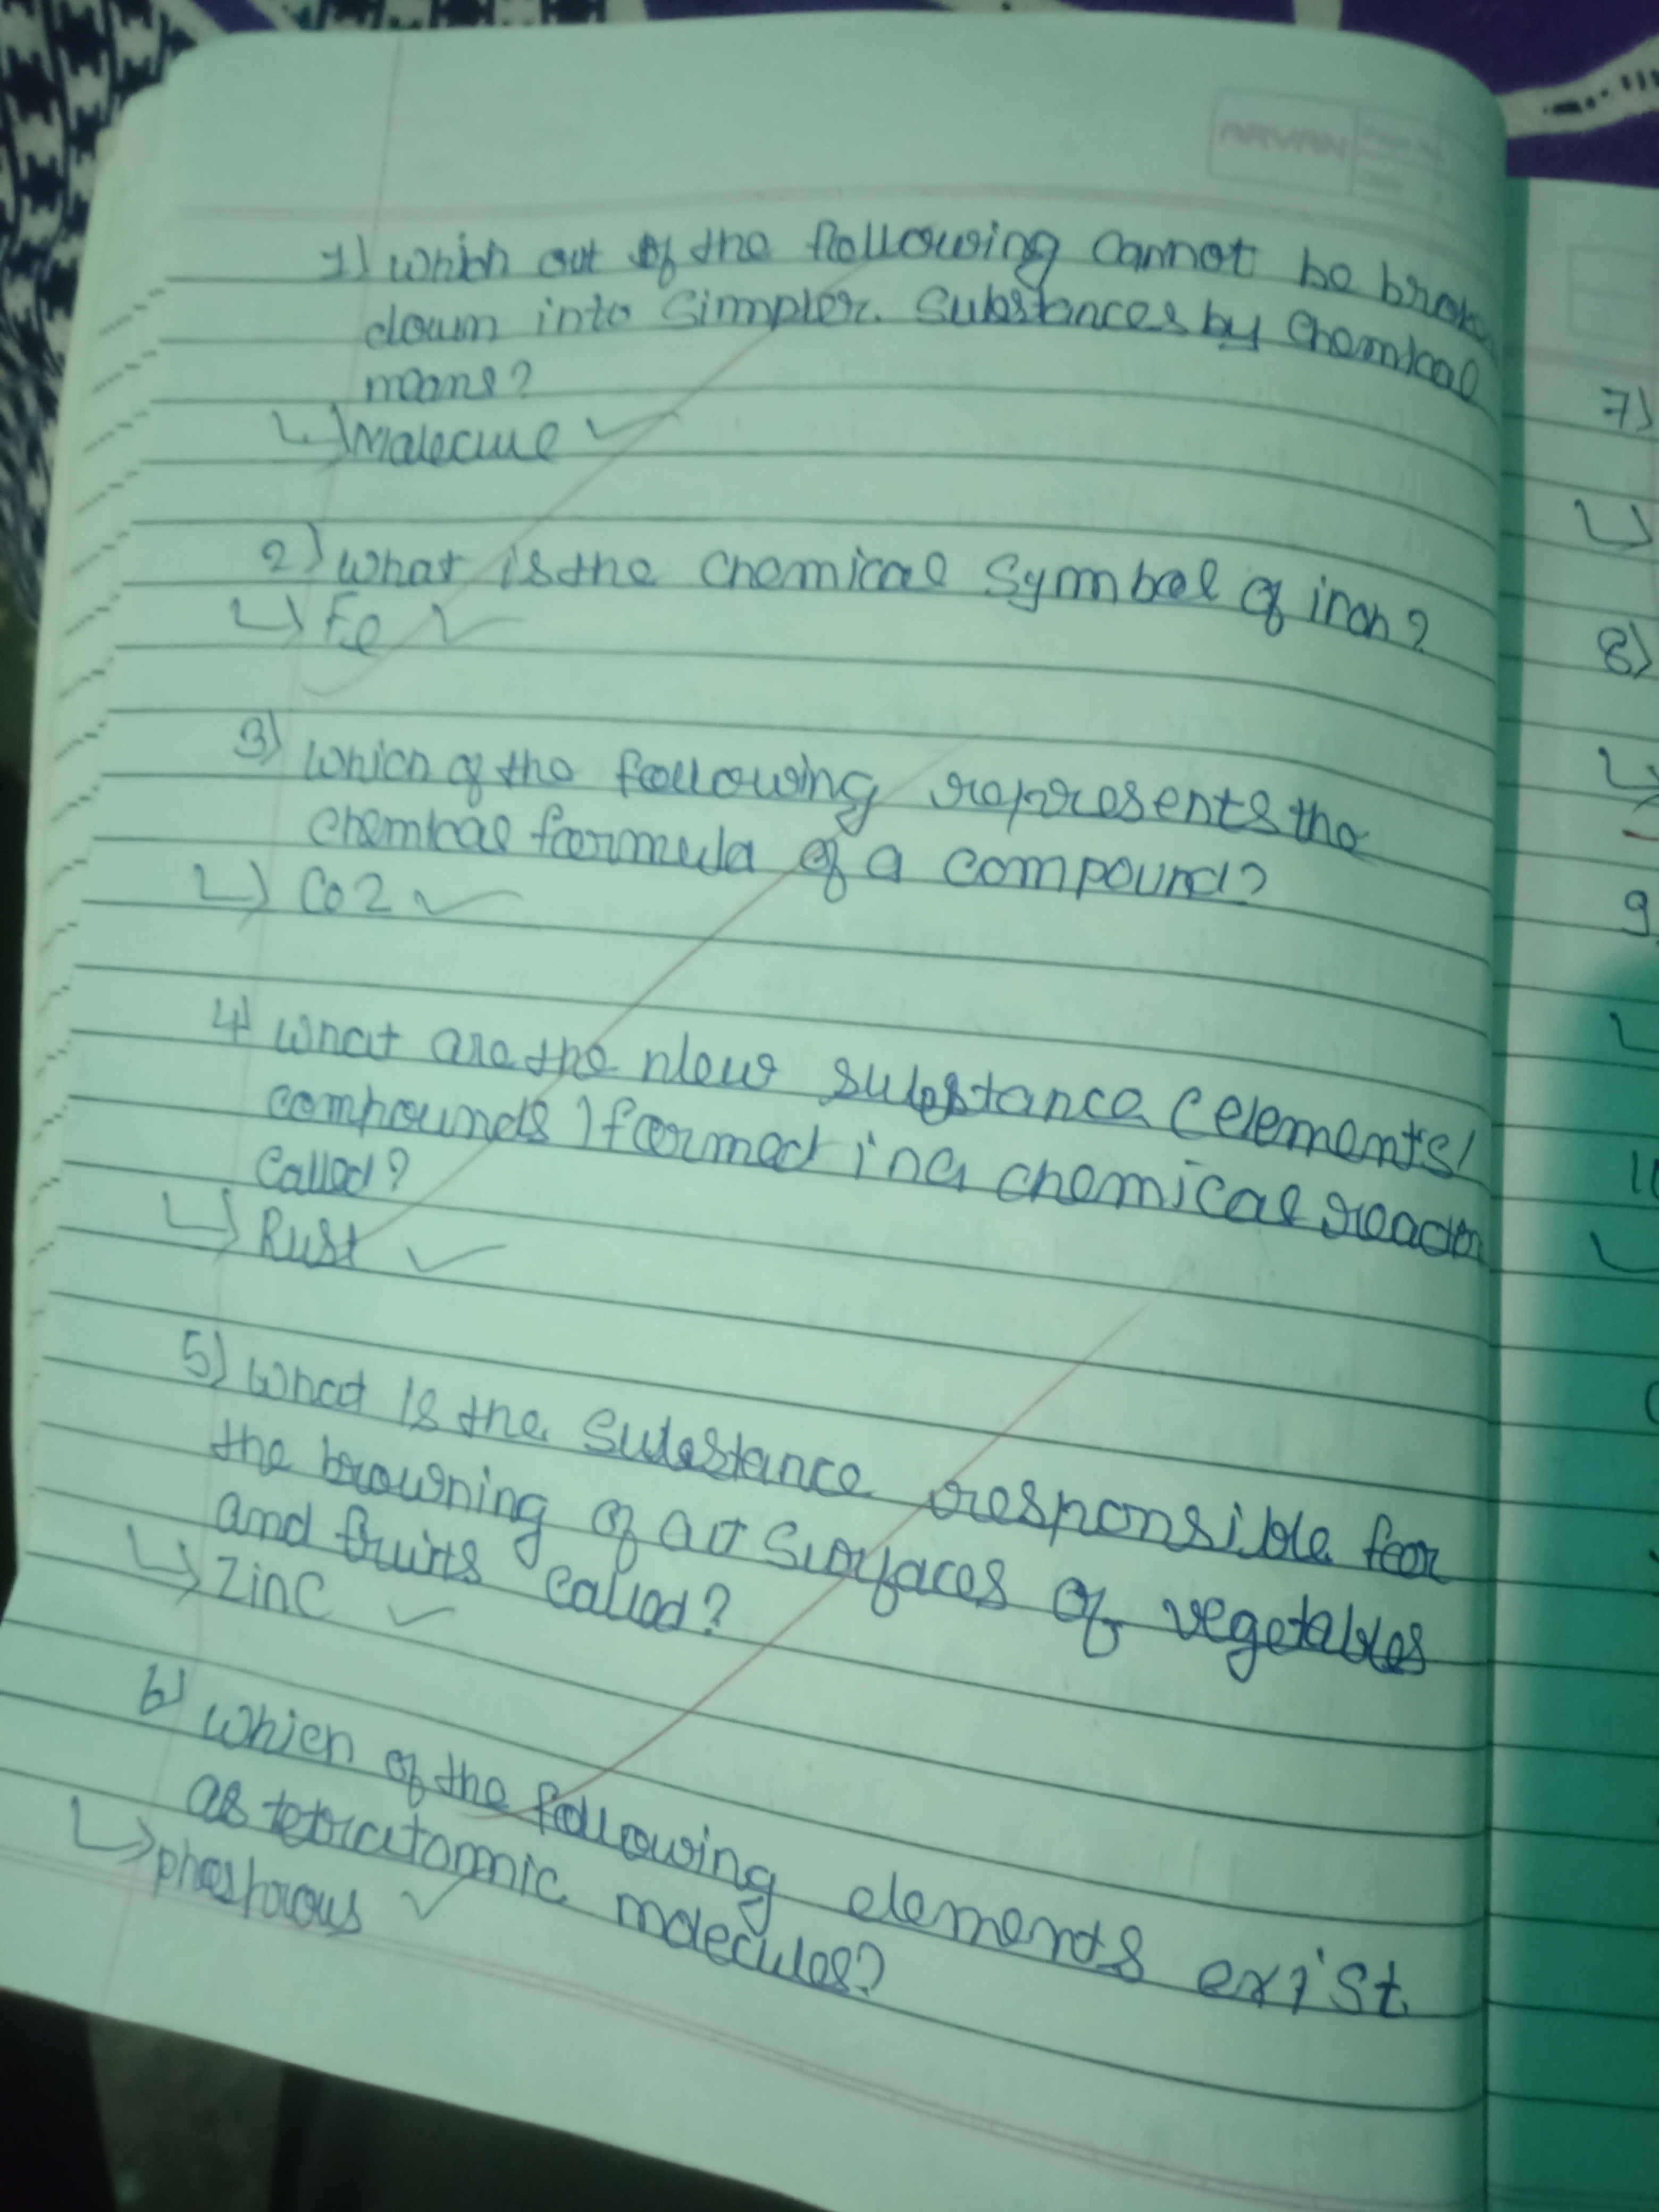 ARVAN
1) Which out of the following cannot be broken
down into simpler substances by chemical
means?
Malecule
2) What is the chemical symbol of iron?
Fe
3) Which of the following represents the
chemical formula of a compound?
Co2
4) What are the new substance (elements/
compounds) formed in a chemical
called?
Rust
5) What is the substance responsible for
the browning of cut surfaces of vegetables
and fruits called?
Zinc
6) Which of the following elements exist
as tetratomic molecules?
phosphorous
7)
8)
9
10